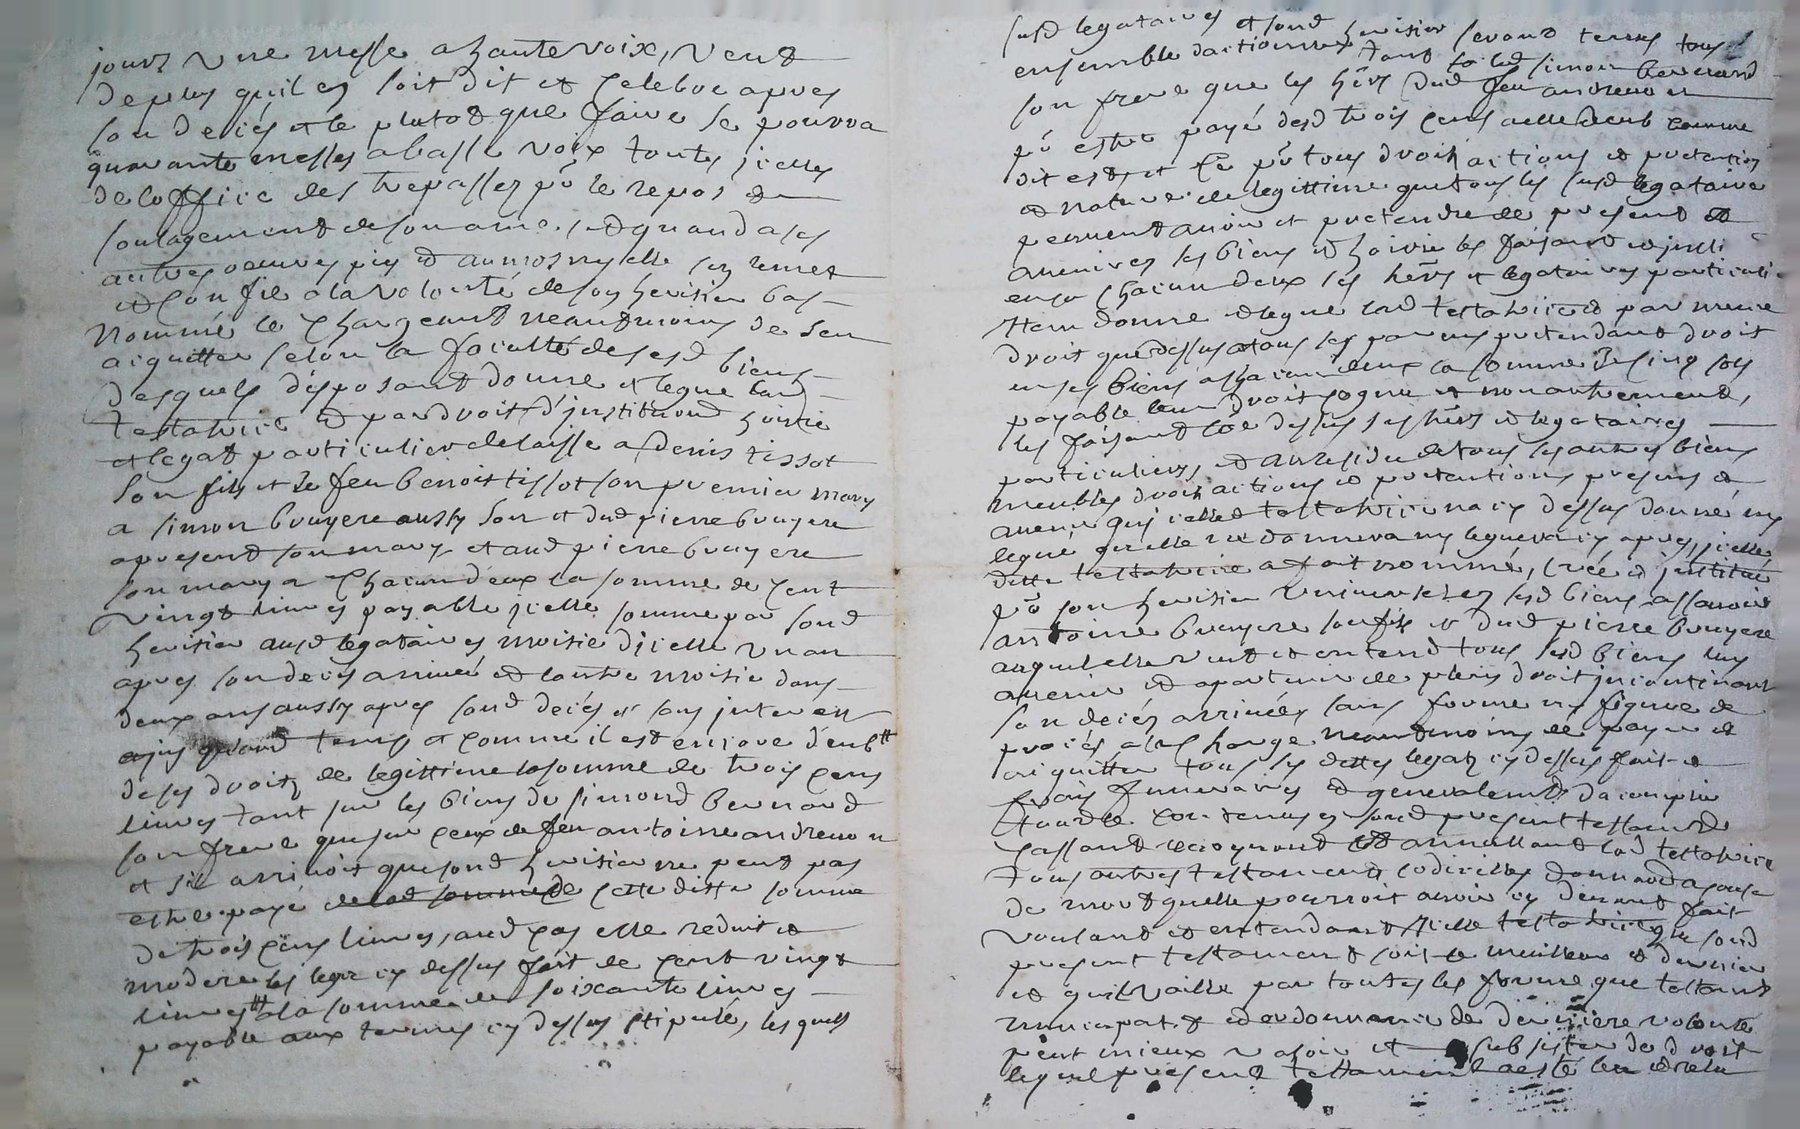 jours une messe a haute voix, veut
de plus quil en soit dit et celebre apres
son deces et le plutot que faire se pourra
quarante messes a basse voix toutes jcelles
de loffice des trepasses pr le repos et
soulagement de son ame, et quand a ses
autres oeuvres pies et aumosnes elle sen remet
et confie a la volonté de son heritier bas
nommé le chargeant neantmoins de sen
acquitter selon la faculté de sesd biens
desquels disposant donne et legue lad
testatrice et par droit d'jnstitutiond hoirie
et legat particulier delaisse a denis tissot
son fils et de feu benoist tissot son premier mary
a simon bruyere aussy son et dud pierre bruyere
a present son mary et aud pierre bruyere
son mary a chacun deux la somme de cent
vingt livres payable jcelle somme par sond
heritier ausd legataires moitié djcelle un an
apres son deces arrivé et lautre moitie dans
deux ans aussy apres sond deces et sans jnterest
tems et comme il est encore deub
de ses droits de legittime la somme de trois cens
livres tant sur les biens de simond bernard
son frere que sur ceux de feu antoine andrevon
et sil arrivoit que sond heritier ne peut pas
estre payé de lad somme de cette ditte somme
de trois cens livres, aud cas elle reduit et
modere les legs cy dessus fait de cent vingt
livres a la somme de soixante livres
payable aux termes cy dessus stipulé, lesquels
susd legataires et sond heritier seront tenus tous
ensemble dactionner tant led simon bernard
son frere que les hers dud feu andrevon
pr estre payé desd trois cens a elle deub comme
dit est, et ce pr tous droits actions et pretentions
et nature de legittime que tous les susd legataire
peuvent avoir et pretendre de present et
avenir en ses biens et hoirie les faisant
chacun deux ses hers et legataires particuli
Item donne et legue lad testatrice et par meme
droit que dessus a tous ses parens pretendant droit
en ses biens a chacun deux la somme de cinq sols
payable leur droit cogneu et non autrement,
les faisant coe dessus ses hers et legataires
particuliers, et au residu de tous ses autres biens
meubles droits actions et pretentions presens et
avenir qu'jcelle testatrice na cy dessus donné ny
legué quelle ne donnera ny leguera cy apres, jcelle
ditte testatrice a fait nommé, creé et jnstitué
pr son heritier universel en sesd biens assavoir
antoine bruyere son fils et dud pierre bruyere
auquel elle veut et entend tous sesd biens luy
avenir et apartenir de plein droit jncontinant
son deces arrivée sans forme ny figure de
procés, a la charge neantmoins de payer et
acquitter tous ses dettes legats cy dessus fait et
frais funeraires et generalemt daccomplir
tout le contenu en sond present testament
cassant revoquant et annullant lad testatrice
tous autres testaments codicilles donnation a cause
de mort quelle pourroit avoir cy devant fait
voulant et entendant jcelle testatrice que sond
present testament soit le meilleur et dernier
et quil vaille par toutes les forme que testament
noncupat. et ordonnance de derniere volonté
peut mieux valoir et subsister de droit
lequel present testament a esté leu et releu